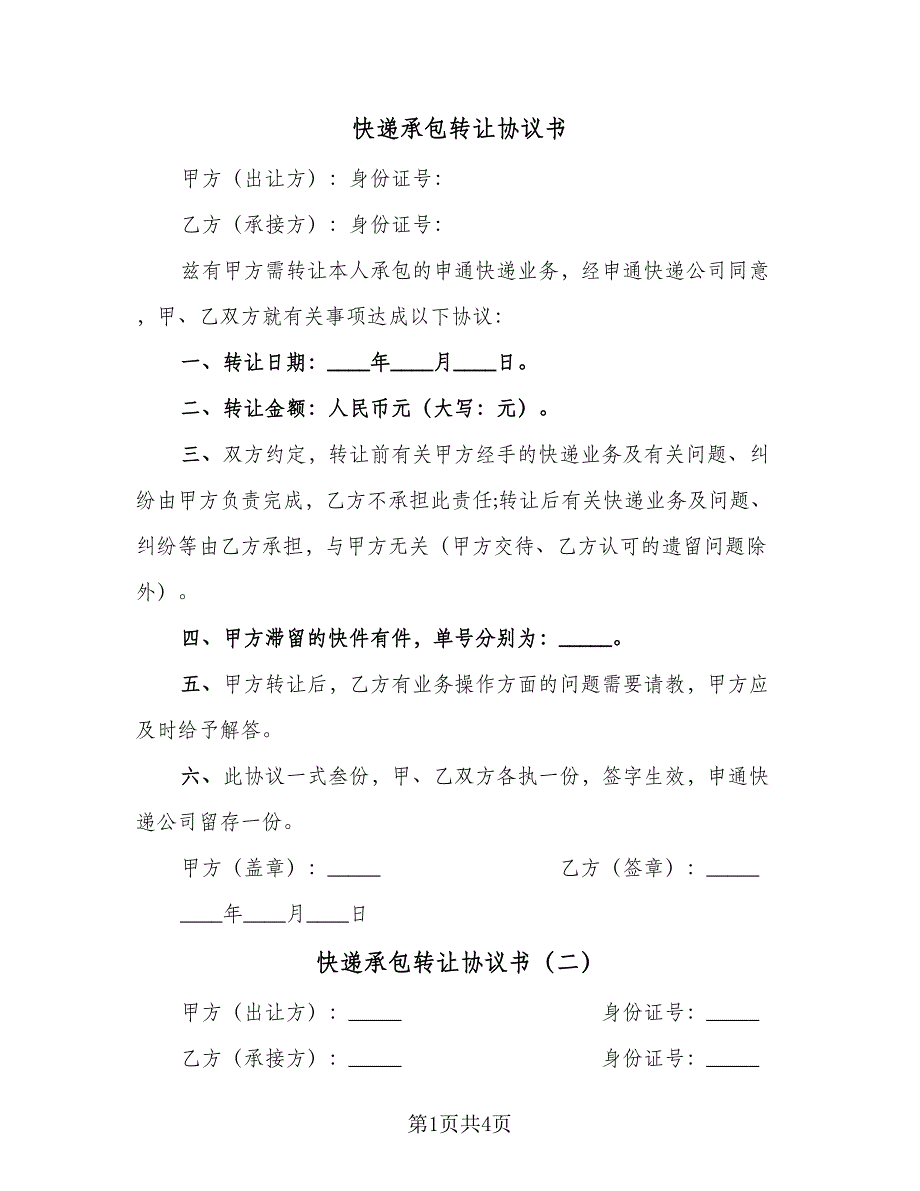 快递承包转让协议书
甲方（出让方）：身份证号：
乙方（承接方）：身份证号：
兹有甲方需转让本人承包的申通快递业务，经申通快递公司同意
，甲、乙双方就有关事项达成以下协议：
一、转让日期：____年____月____日。
二、转让金额：人民币元（大写：元）。
三、双方约定，转让前有关甲方经手的快递业务及有关问题、纠
纷由甲方负责完成，乙方不承担此责任;转让后有关快递业务及问题、
纠纷等由乙方承担，与甲方无关（甲方交待、乙方认可的遗留问题除
外）。
四、甲方滞留的快件有件，单号分别为：_____。
五、甲方转让后，乙方有业务操作方面的问题需要请教，甲方应
及时给予解答。
六、此协议一式叁份，甲、乙双方各执一份，签字生效，申通快
递公司留存一份。
甲方（盖章）：_____ 乙方（签章）：_____
____年____月____日
快递承包转让协议书（二）
甲方（出让方）：_____ 身份证号：_____
乙方（承接方）：_____ 身份证号：_____
第1页共4页